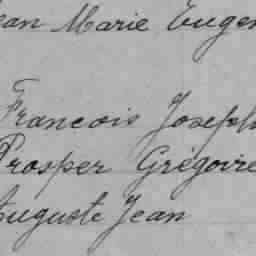 Jean Marie Eugen
Francois Joseph
Prosper Grégoire
Auguste Jean